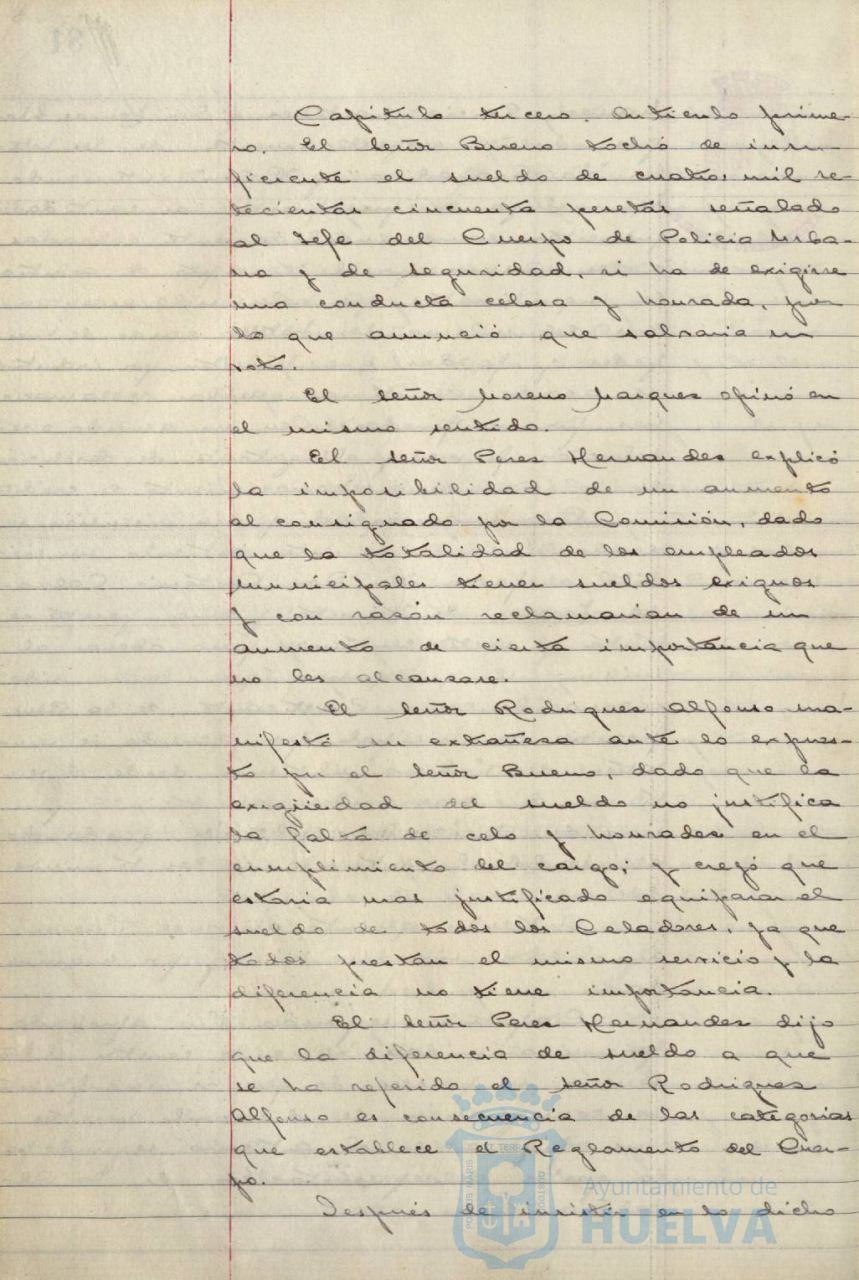 Capitulo tercero. Articulo prime-
ro. El señor Bueno tachó de insu-
ficiente el sueldo de cuatro, mil se-
tecientas cincuenta pesetas señalado
al Jefe del Cuerpo de Policia Urba-
na y de seguridad, si ha de exigirse
una conducta celosa y honrada, por
lo que anunció que salvaria su
voto.
El señor Moreno Marquez opinó en
el mismo sentido.
El señor Perez Hernandez explicó
la imposibilidad de un aumento
al consignado por la Comisión, dado
que la totalidad de los empleados
municipales tienen sueldos exiguos
y con razón reclamarian de un
aumento de cierta importancia que
no les alcanzase.
El señor Rodriguez Alfonso ma-
nifestó su extrañeza ante lo expues-
to por el señor Bueno, dado que la
exigüedad del sueldo no justifica
la falta de celo y honradez en el
cumplimiento del cargo; y creyó que
estaria mas justificado equiparar el
sueldo de todos los Celadores, ya que
todos prestan el mismo servicio y la
diferencia no tiene importancia.
El señor Perez Hernandez dijo
que la diferencia de sueldo a que
se ha referido el señor Rodriguez
Alfonso es consecuencia de las categorias
que establece el Reglamento del Cuer-
po.
Después de insistir en lo dicho
Ayuntamiento de
HUELVA